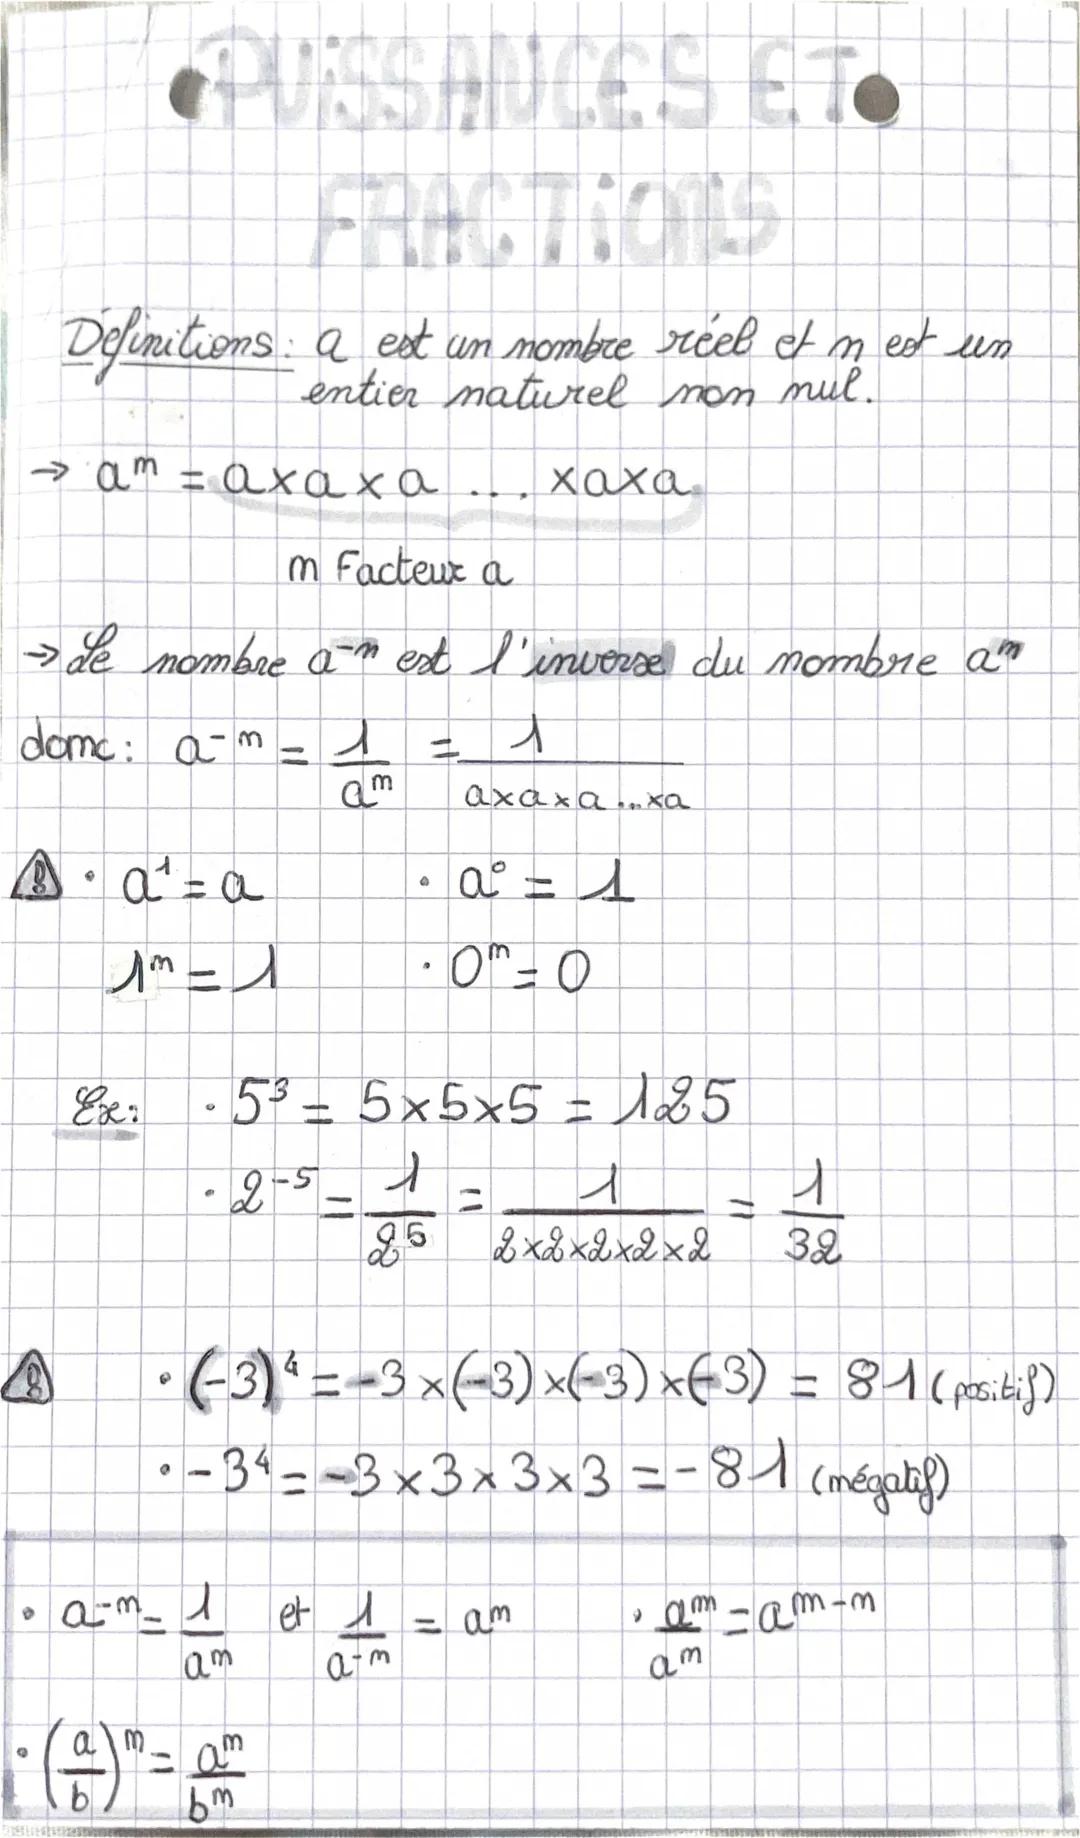 PUISSANCES ET
FRACTIONS
Définitions : a est un nombre réel et n est un
entier naturel non nul.
→ aⁿ = a×a×a ... ×a×a
n Facteur a
→ Le nombre a⁻ⁿ est l'inverse du nombre aⁿ
donc : a⁻ⁿ = 1/aⁿ = 1/(a×a×a...×a)
• a¹ = a • a⁰ = 1
1ⁿ = 1 • 0ⁿ = 0
Ex : • 5³ = 5×5×5 = 125
• 2⁻⁵ = 1/2⁵ = 1/(2×2×2×2×2) = 1/32
• (-3)⁴ = -3×(-3)×(-3)×(-3) = 81 (positif)
• -3⁴ = -3×3×3×3 = -81 (négatif)
• a⁻ⁿ = 1/aⁿ et 1/a⁻ⁿ = aⁿ • aᵐ/aⁿ = aᵐ⁻ⁿ
• (a/b)ⁿ = aⁿ/bⁿ